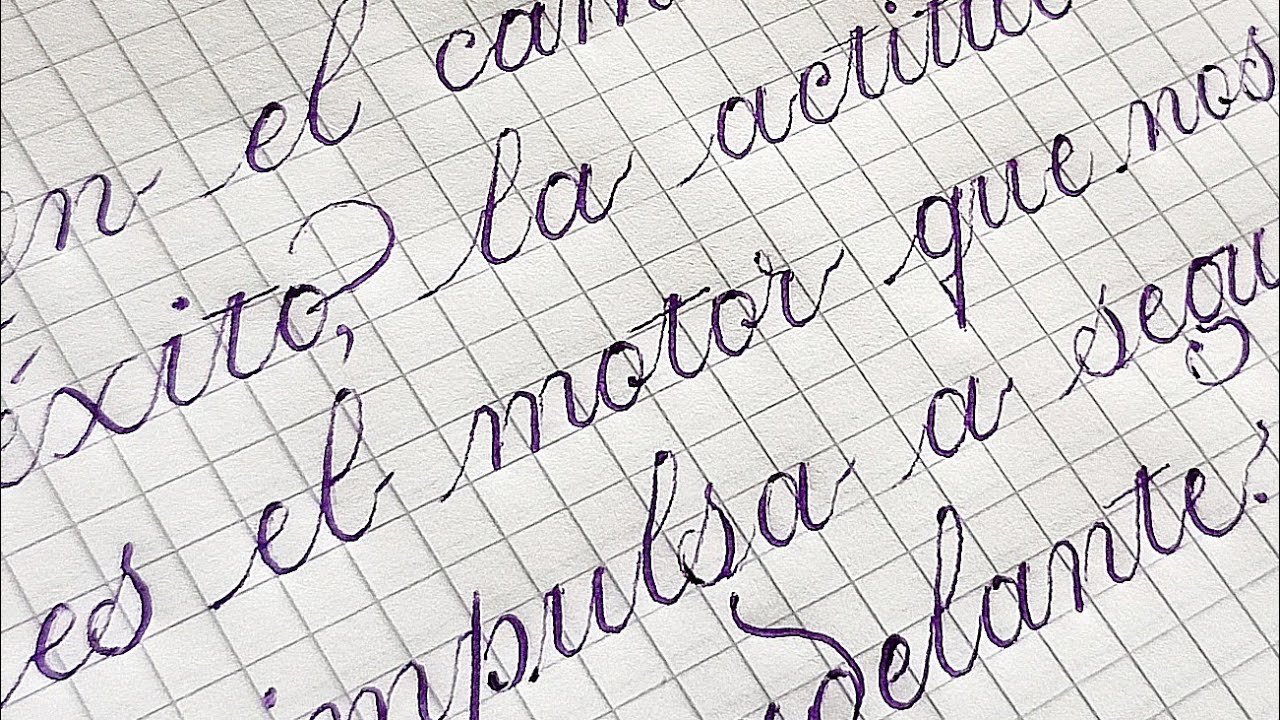 en el cam
éxito, la actitud
es el motor que nos
impulsa a segu
adelante.